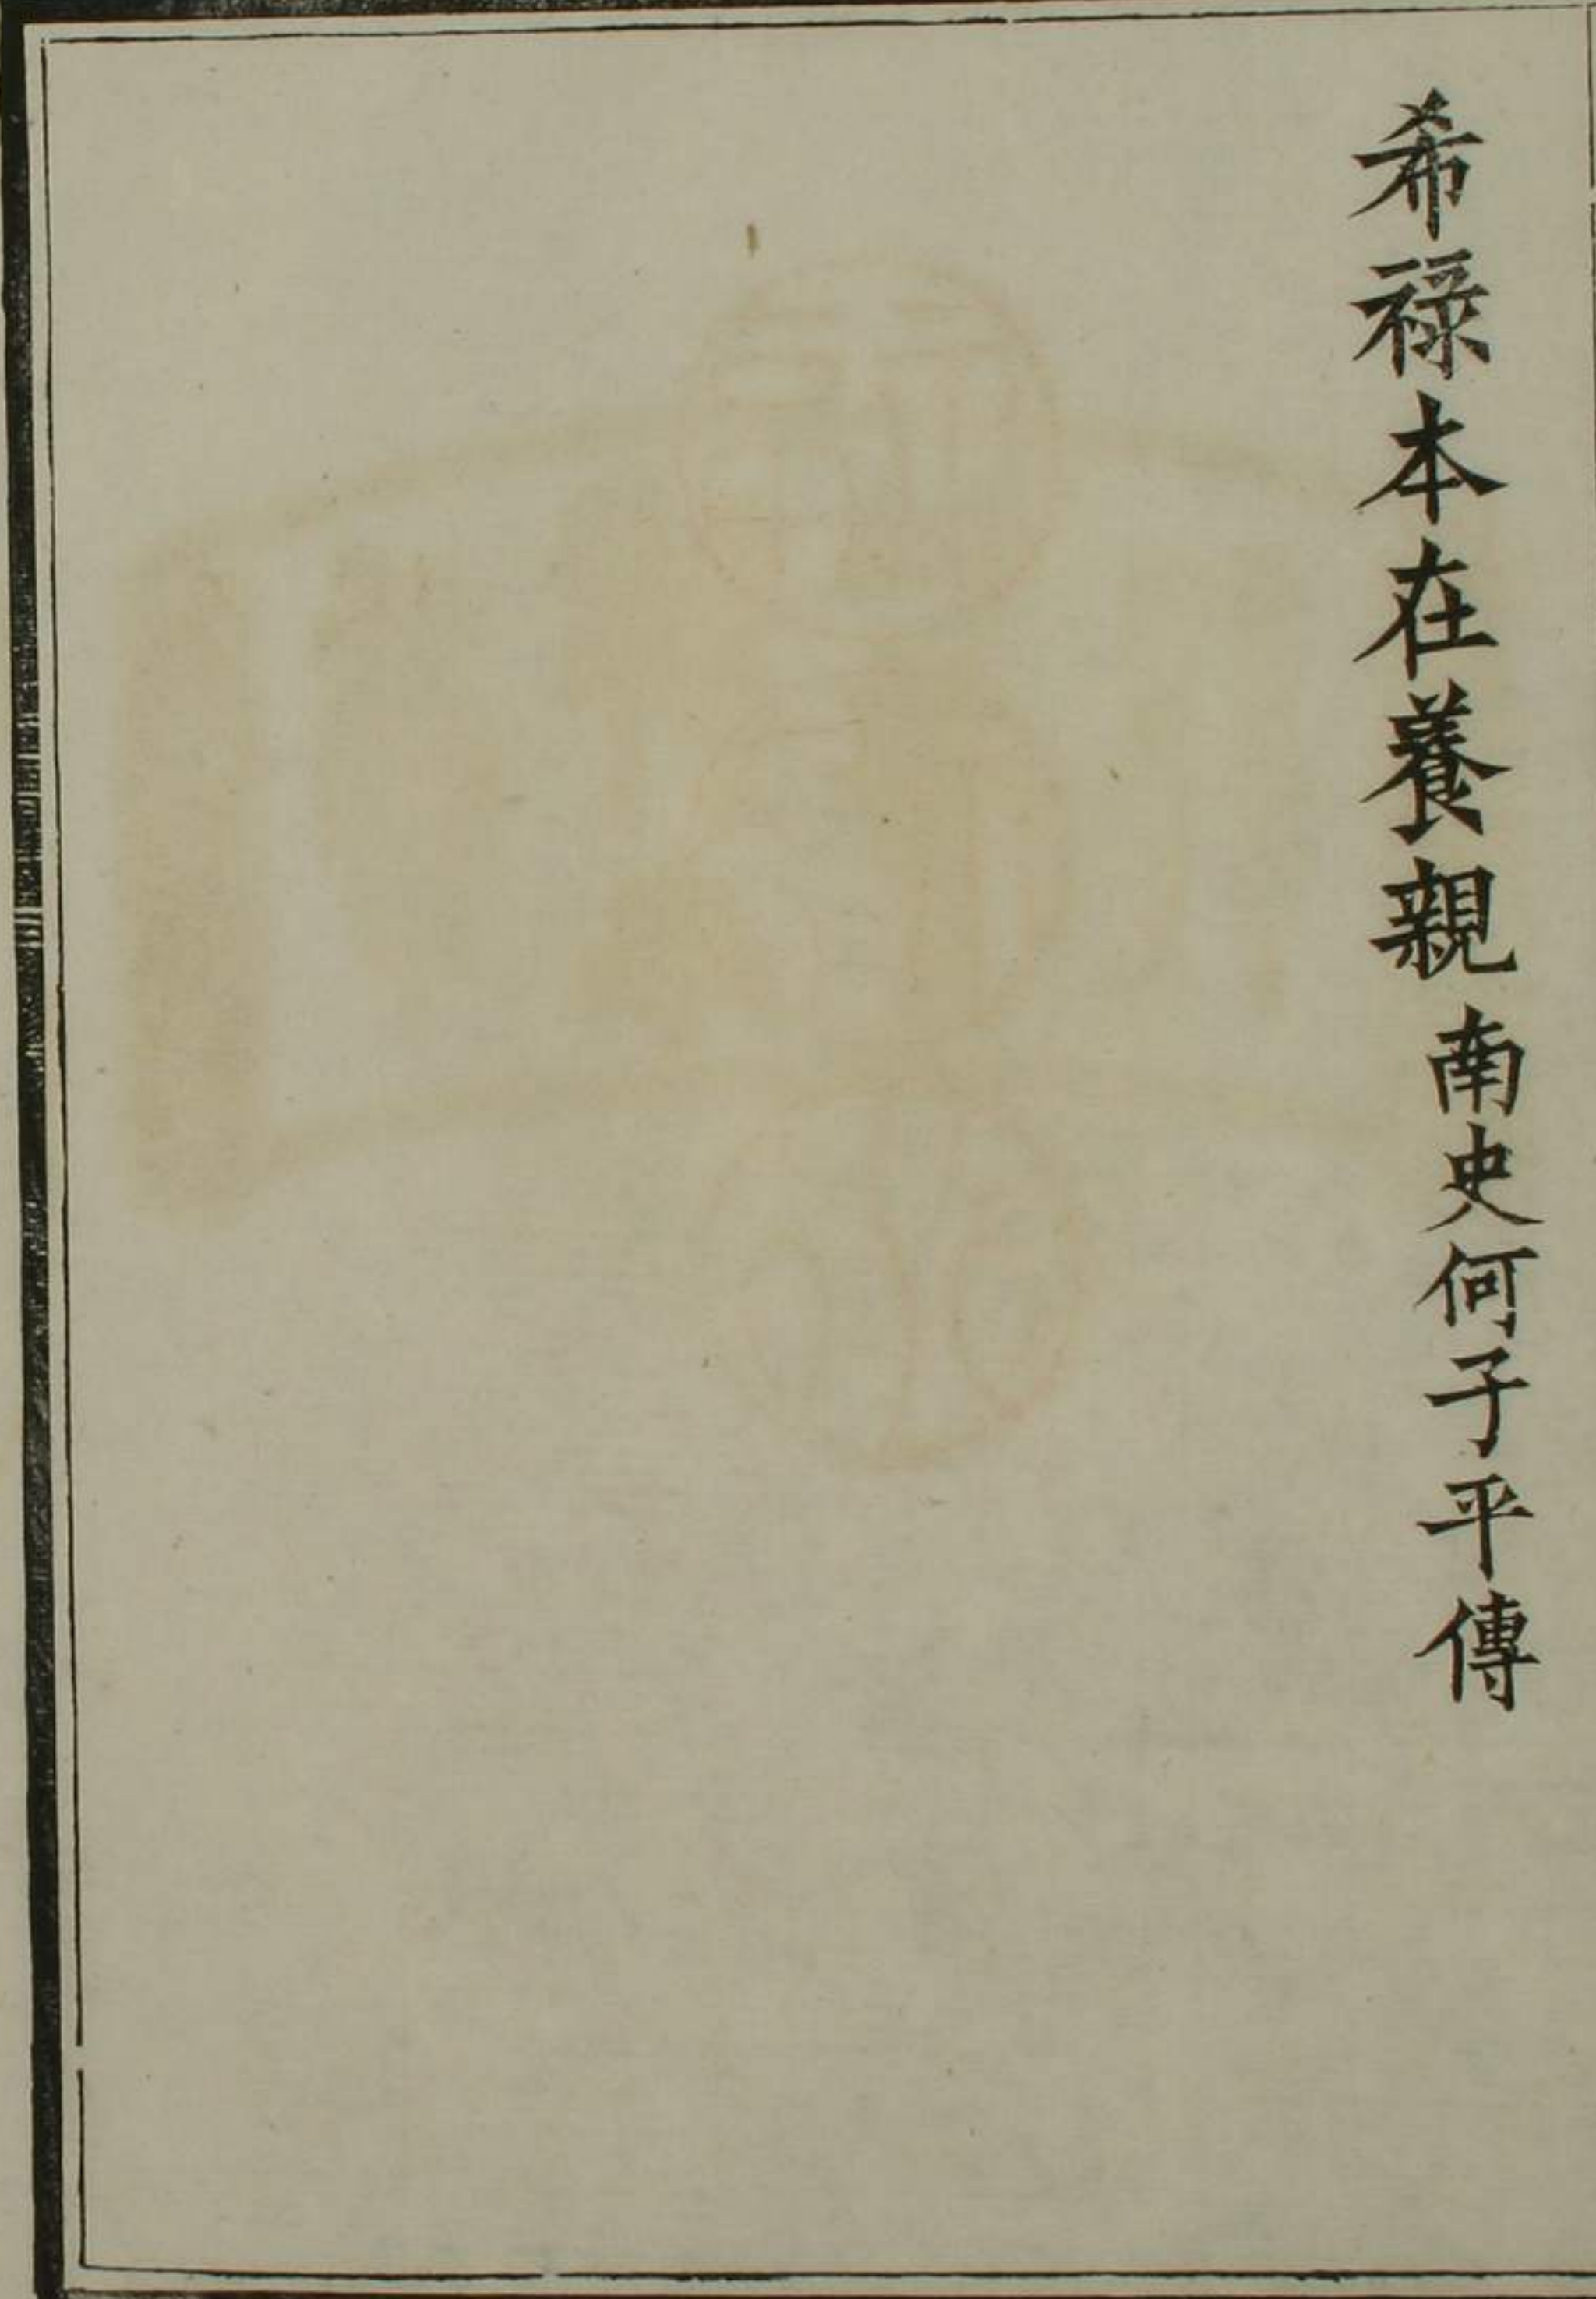 希祿本在養親南史何子平傳